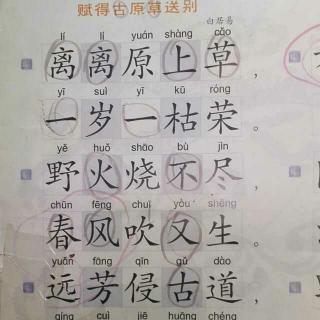 赋得古原草送别
白居易
lí lí yuán shàng cǎo
离离原上草，
yī suì yī kū róng
一岁一枯荣。
yě huǒ shāo bù jìn
野火烧不尽，
chūn fēng chuī yòu shēng
春风吹又生。
yuǎn fāng qīn gǔ dào
远芳侵古道，
qíng cuì jiē huāng chéng